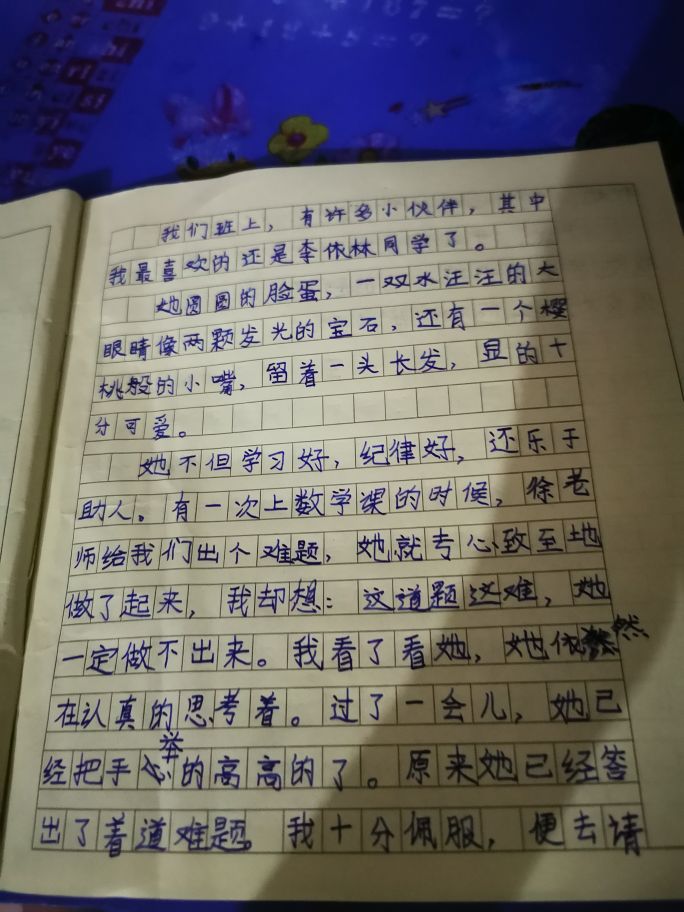 我们班上，有许多小伙伴，其中
我最喜欢的还是李依林同学了。
她圆圆的脸蛋，一双水汪汪的大
眼睛像两颗发光的宝石，还有一个樱
桃般的小嘴，留着一头长发，显的十
分可爱。
她不但学习好，纪律好，还乐于
助人。有一次上数学课的时候，徐老
师给我们出个难题，她就专心致至地
做了起来，我却想：这道题这难，她
一定做不出来。我看了看她，她依然
在认真的思考着。过了一会儿，她已
经把手举的高高的了。原来她已经答
出了着道难题。我十分佩服，便去请